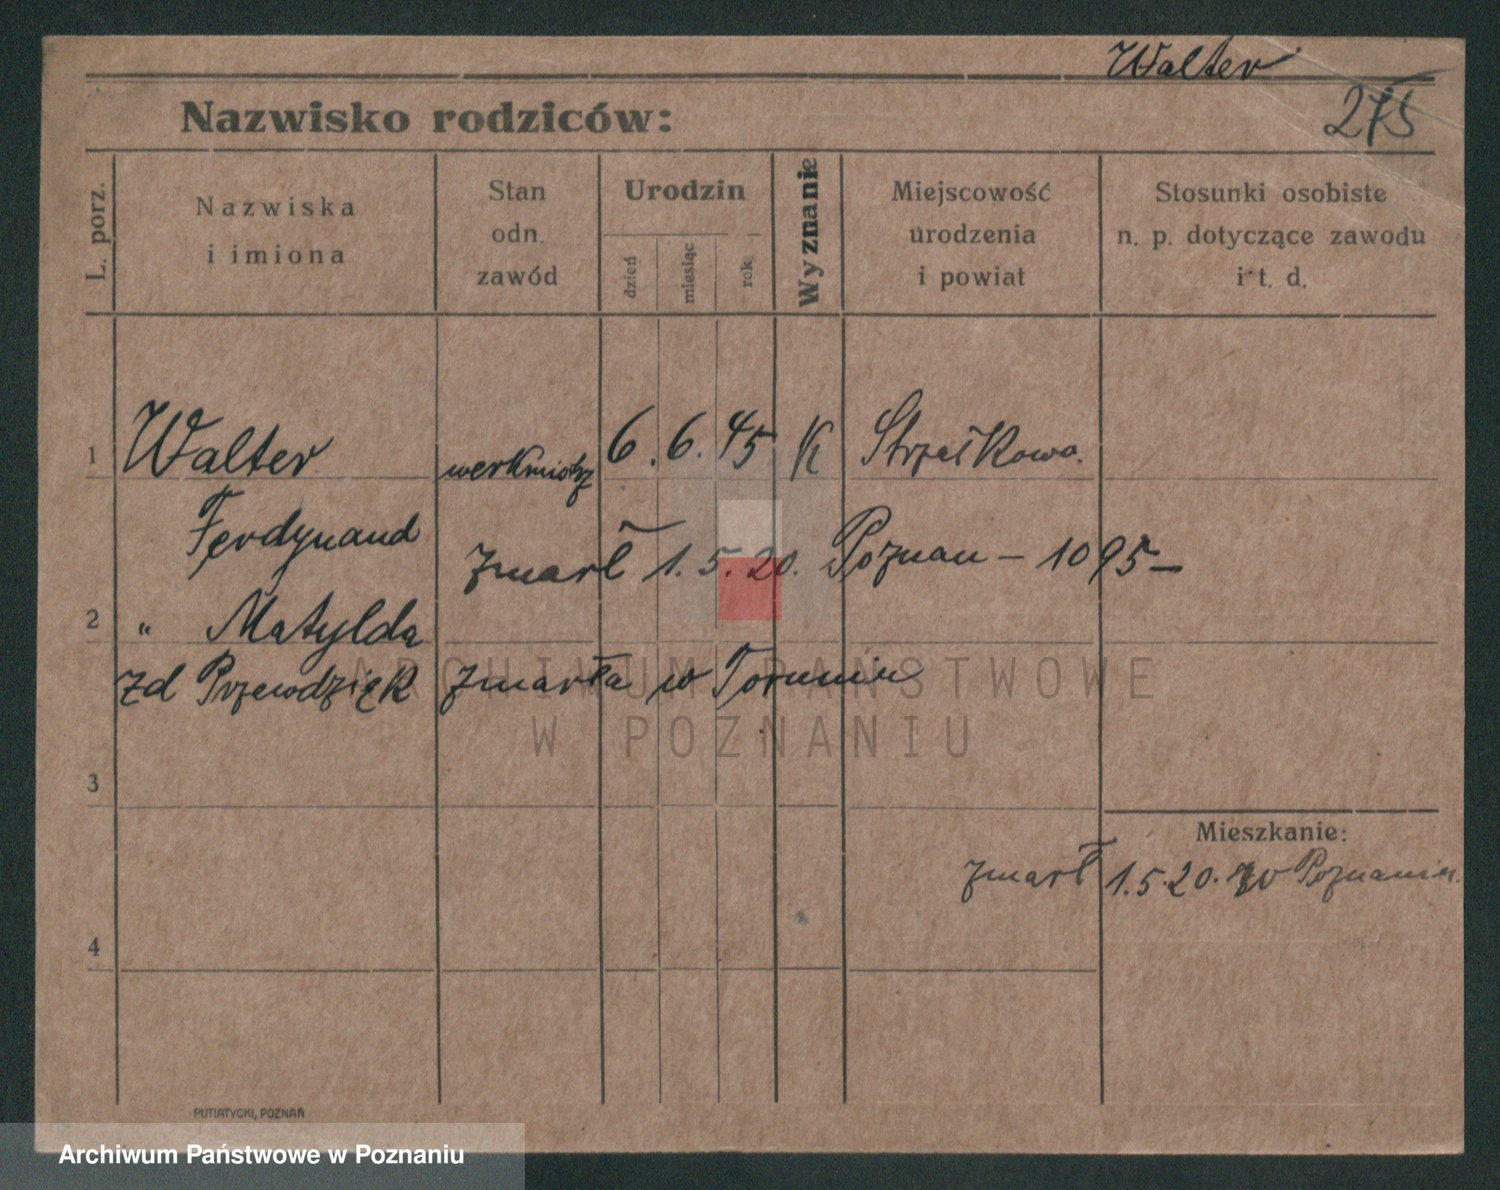 Walter
Nazwisko rodziców: 275
L. porz.
Nazwiska i imiona
Stan odn. zawód
Urodzin
dzień miesiąc rok
Wyznanie
Miejscowość urodzenia i powiat
Stosunki osobiste n. p. dotyczące zawodu i t. d.
1 Walter werkmistrz 6. 6. 45 K Strzałkowo.
Ferdynand
zmarł 1. 5. 20. Poznan – 1095 –
2 " Matylda
zd Przewdzięk zmarła w Toruniu
ARCHIWUM PAŃSTWOWE
W POZNANIU
3
Mieszkanie:
zmarł 1.5.20. w Poznaniu.
4
PUTIATYCKI, POZNAŃ
Archiwum Państwowe w Poznaniu